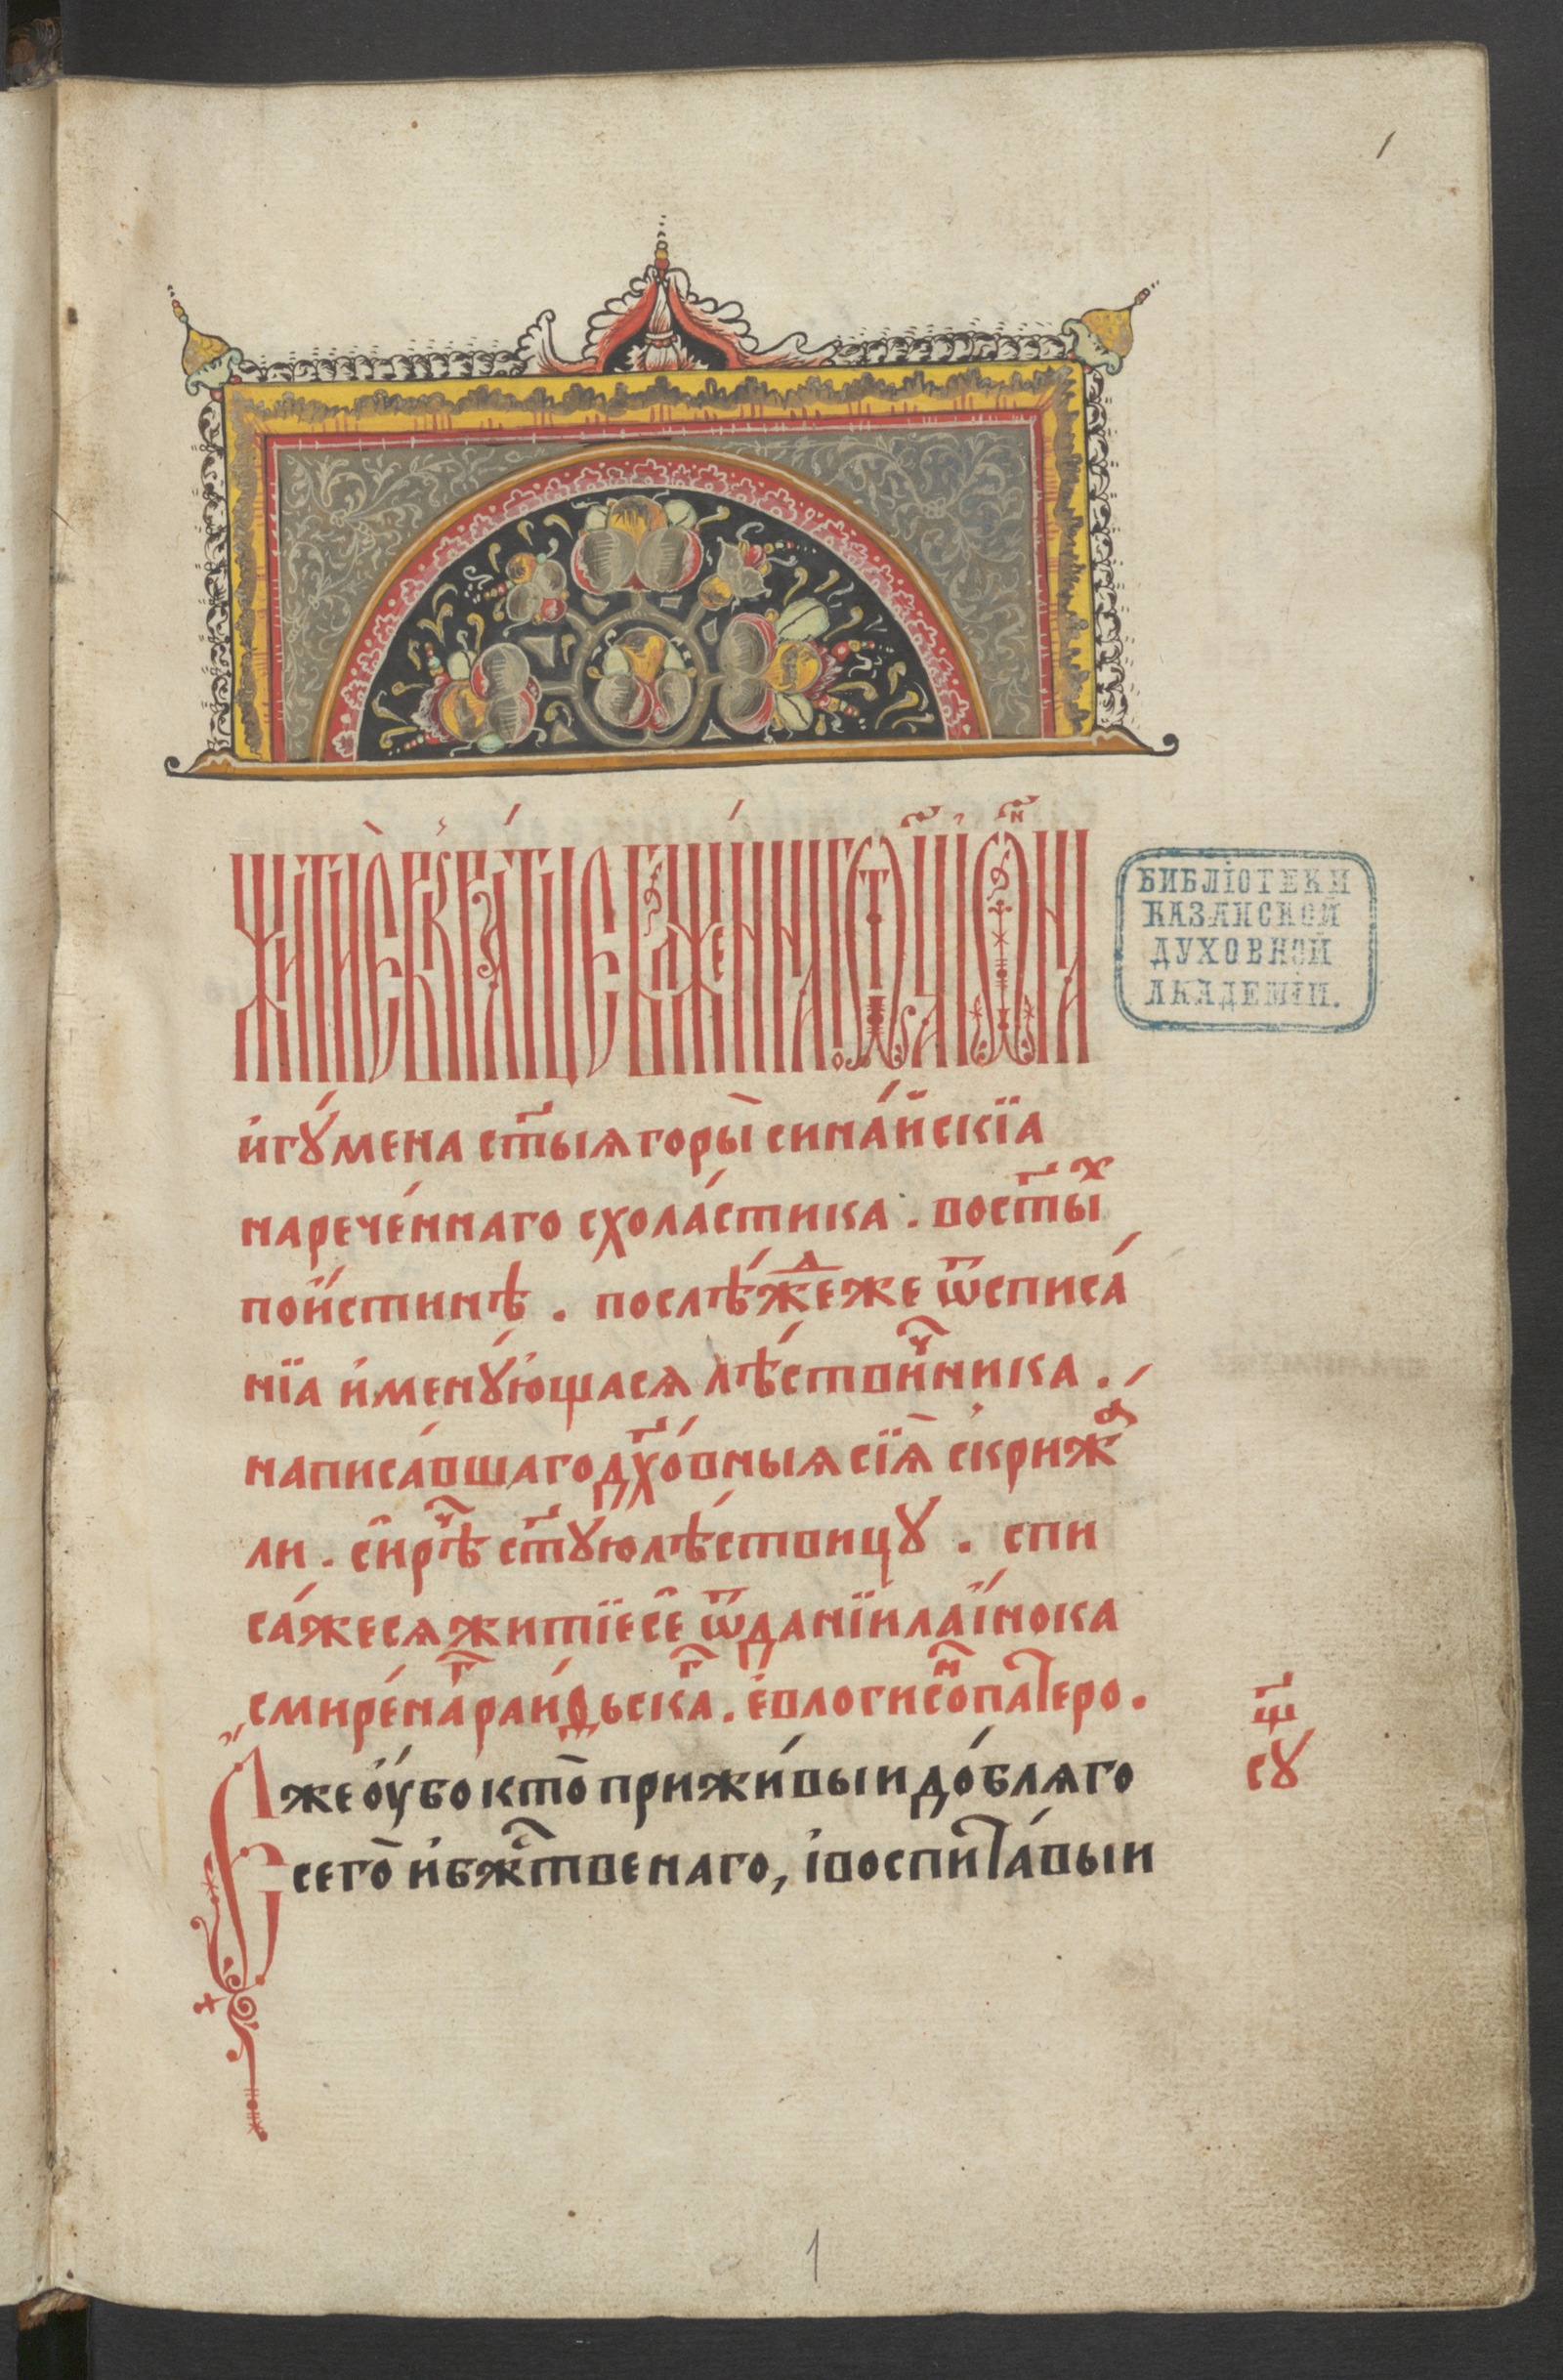 1
житие въкратце блаженнаго ѿца іѡанна
и҆гꙋ́мена ст҃ы́ѧ горы̀ сина́йскїа
нарече́ннаго схола́стика . восты҃́х
пои́стинѣ . послѣ́ж҃еже ѿ списа́
нїа и҆менꙋ́ющасѧ лѣ́ствичника .
написа́вшаго дх҃о́вныѧ сїѧ̀ скрижа
ли . си́рѣч ст҃ꙋ́ю лѣ́ствицꙋ . спи
са́жесѧ житїе се̑ ѿ данїила и́нока
смире́наг раи́ѳьскаг . е҆влогисон патеро .
Єже ᲂу҆́бо кто̀ прижи́выи до́блѧго
сего̀ и҆ бж҃ственаго, і҆ воспита́выи
сꙋ
БИБЛІОТЕКИ
КАЗАНСКОЙ
ДУХОВНОЙ
АКАДЕМІИ.
1